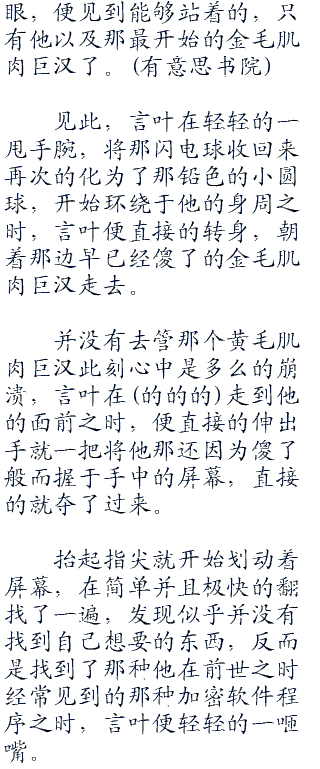 眼，便见到能够站着的，只
有他以及那最开始的金毛肌
肉巨汉了。(有意思书院)
见此，言叶在轻轻的一
甩手腕，将那闪电球收回来
再次的化为了那铅色的小圆
球，开始环绕于他的身周之
时，言叶便直接的转身，朝
着那边早已经傻了的金毛肌
肉巨汉走去。
并没有去管那个黄毛肌
肉巨汉此刻心中是多么的崩
溃，言叶在(的的的)走到他
的面前之时，便直接的伸出
手就一把将他那还因为傻了
般而握于手中的屏幕，直接
的就夺了过来。
抬起指尖就开始划动着
屏幕，在简单并且极快的翻
找了一遍，发现似乎并没有
找到自己想要的东西，反而
是找到了那种他在前世之时
经常见到的那种加密软件程
序之时，言叶便轻轻的一咂
嘴。